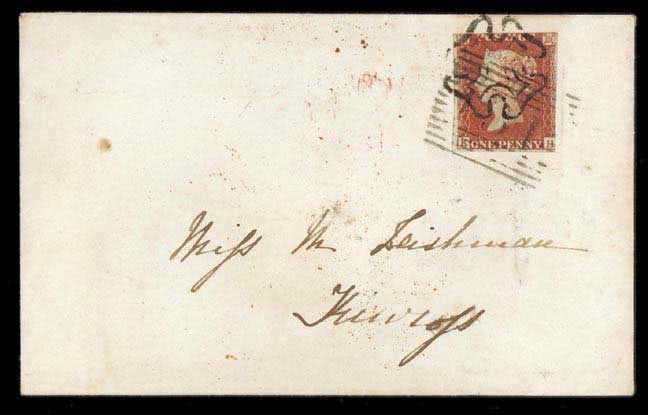 ONE PENNY
Miss M Leishman
Kinross